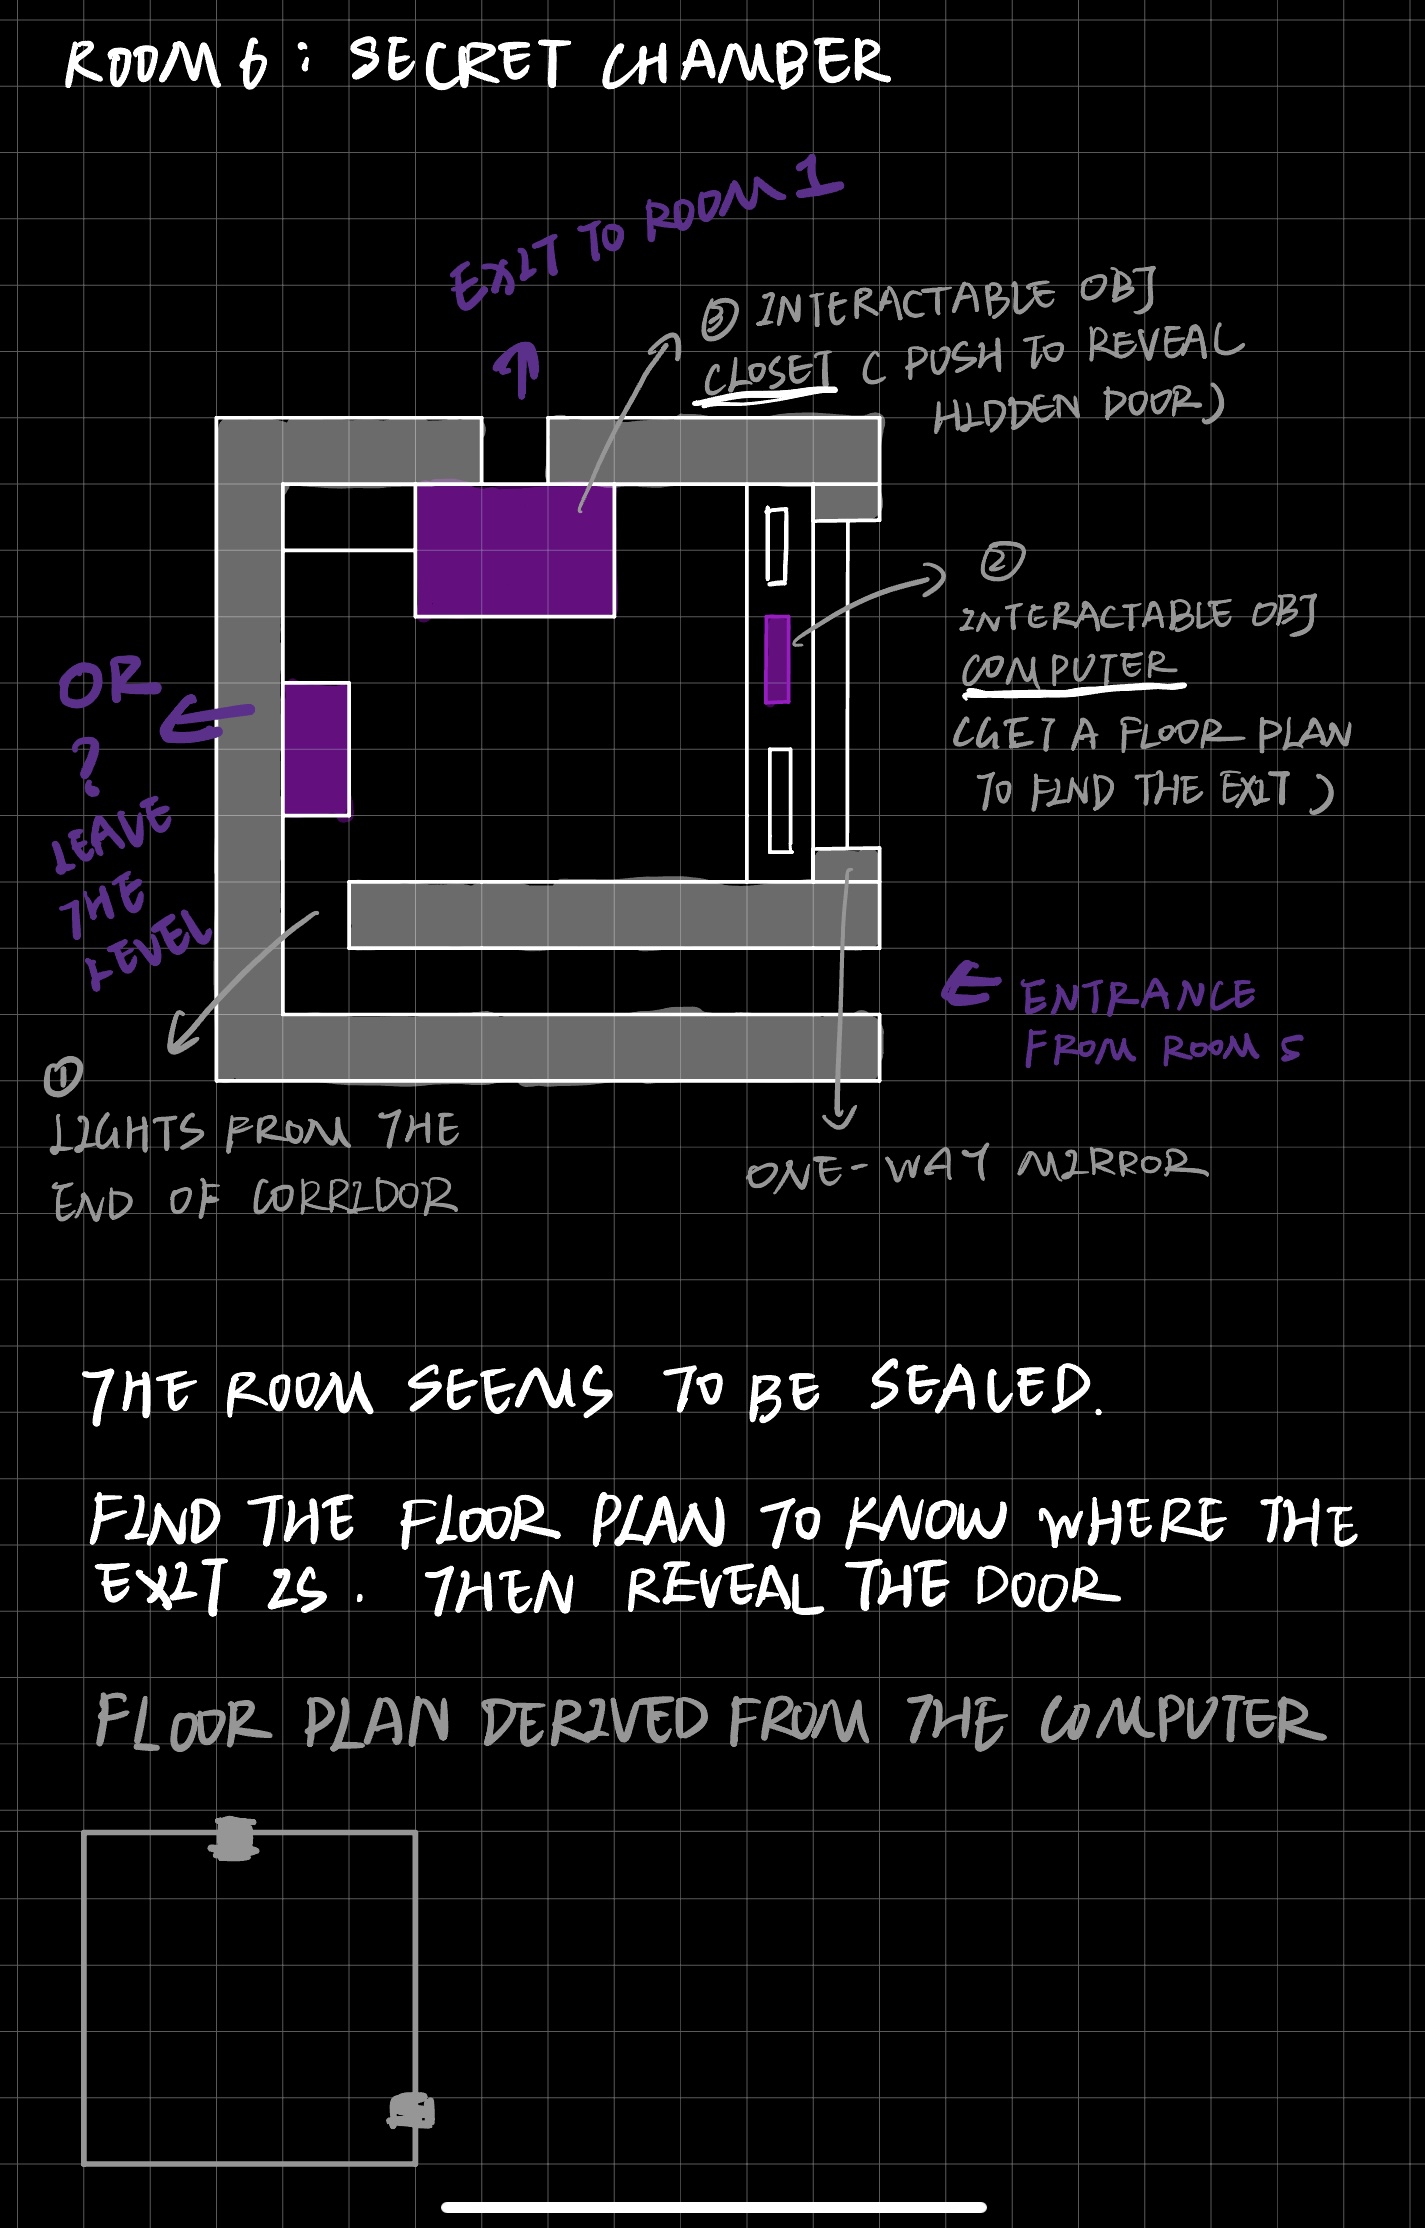 ROOM 6 : SECRET CHAMBER
EXIT TO ROOM 1
③ INTERACTABLE OBJ
CLOSET ( PUSH TO REVEAL
HIDDEN DOOR)
②
INTERACTABLE OBJ
COMPUTER
(GET A FLOOR PLAN
TO FIND THE EXIT )
OR
?
LEAVE
THE
LEVEL
ENTRANCE
FROM ROOM 5
①
LIGHTS FROM THE
END OF CORRIDOR
ONE-WAY MIRROR
THE ROOM SEEMS TO BE SEALED.
FIND THE FLOOR PLAN TO KNOW WHERE THE
EXIT IS. THEN REVEAL THE DOOR
FLOOR PLAN DERIVED FROM THE COMPUTER